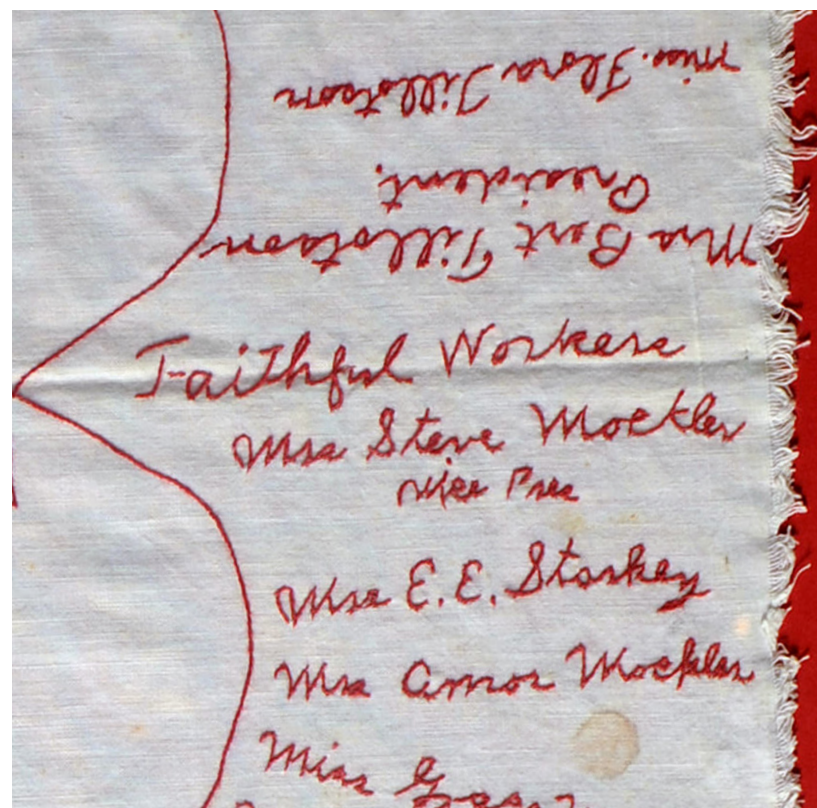 Miss. Flora Tillotson
President.
Mrs Bert Tillotson
Faithful Workers
Mrs Steve Mockler
Vice Pres
Mrs E. E. Storkey
Mrs Amos Mockler
Miss